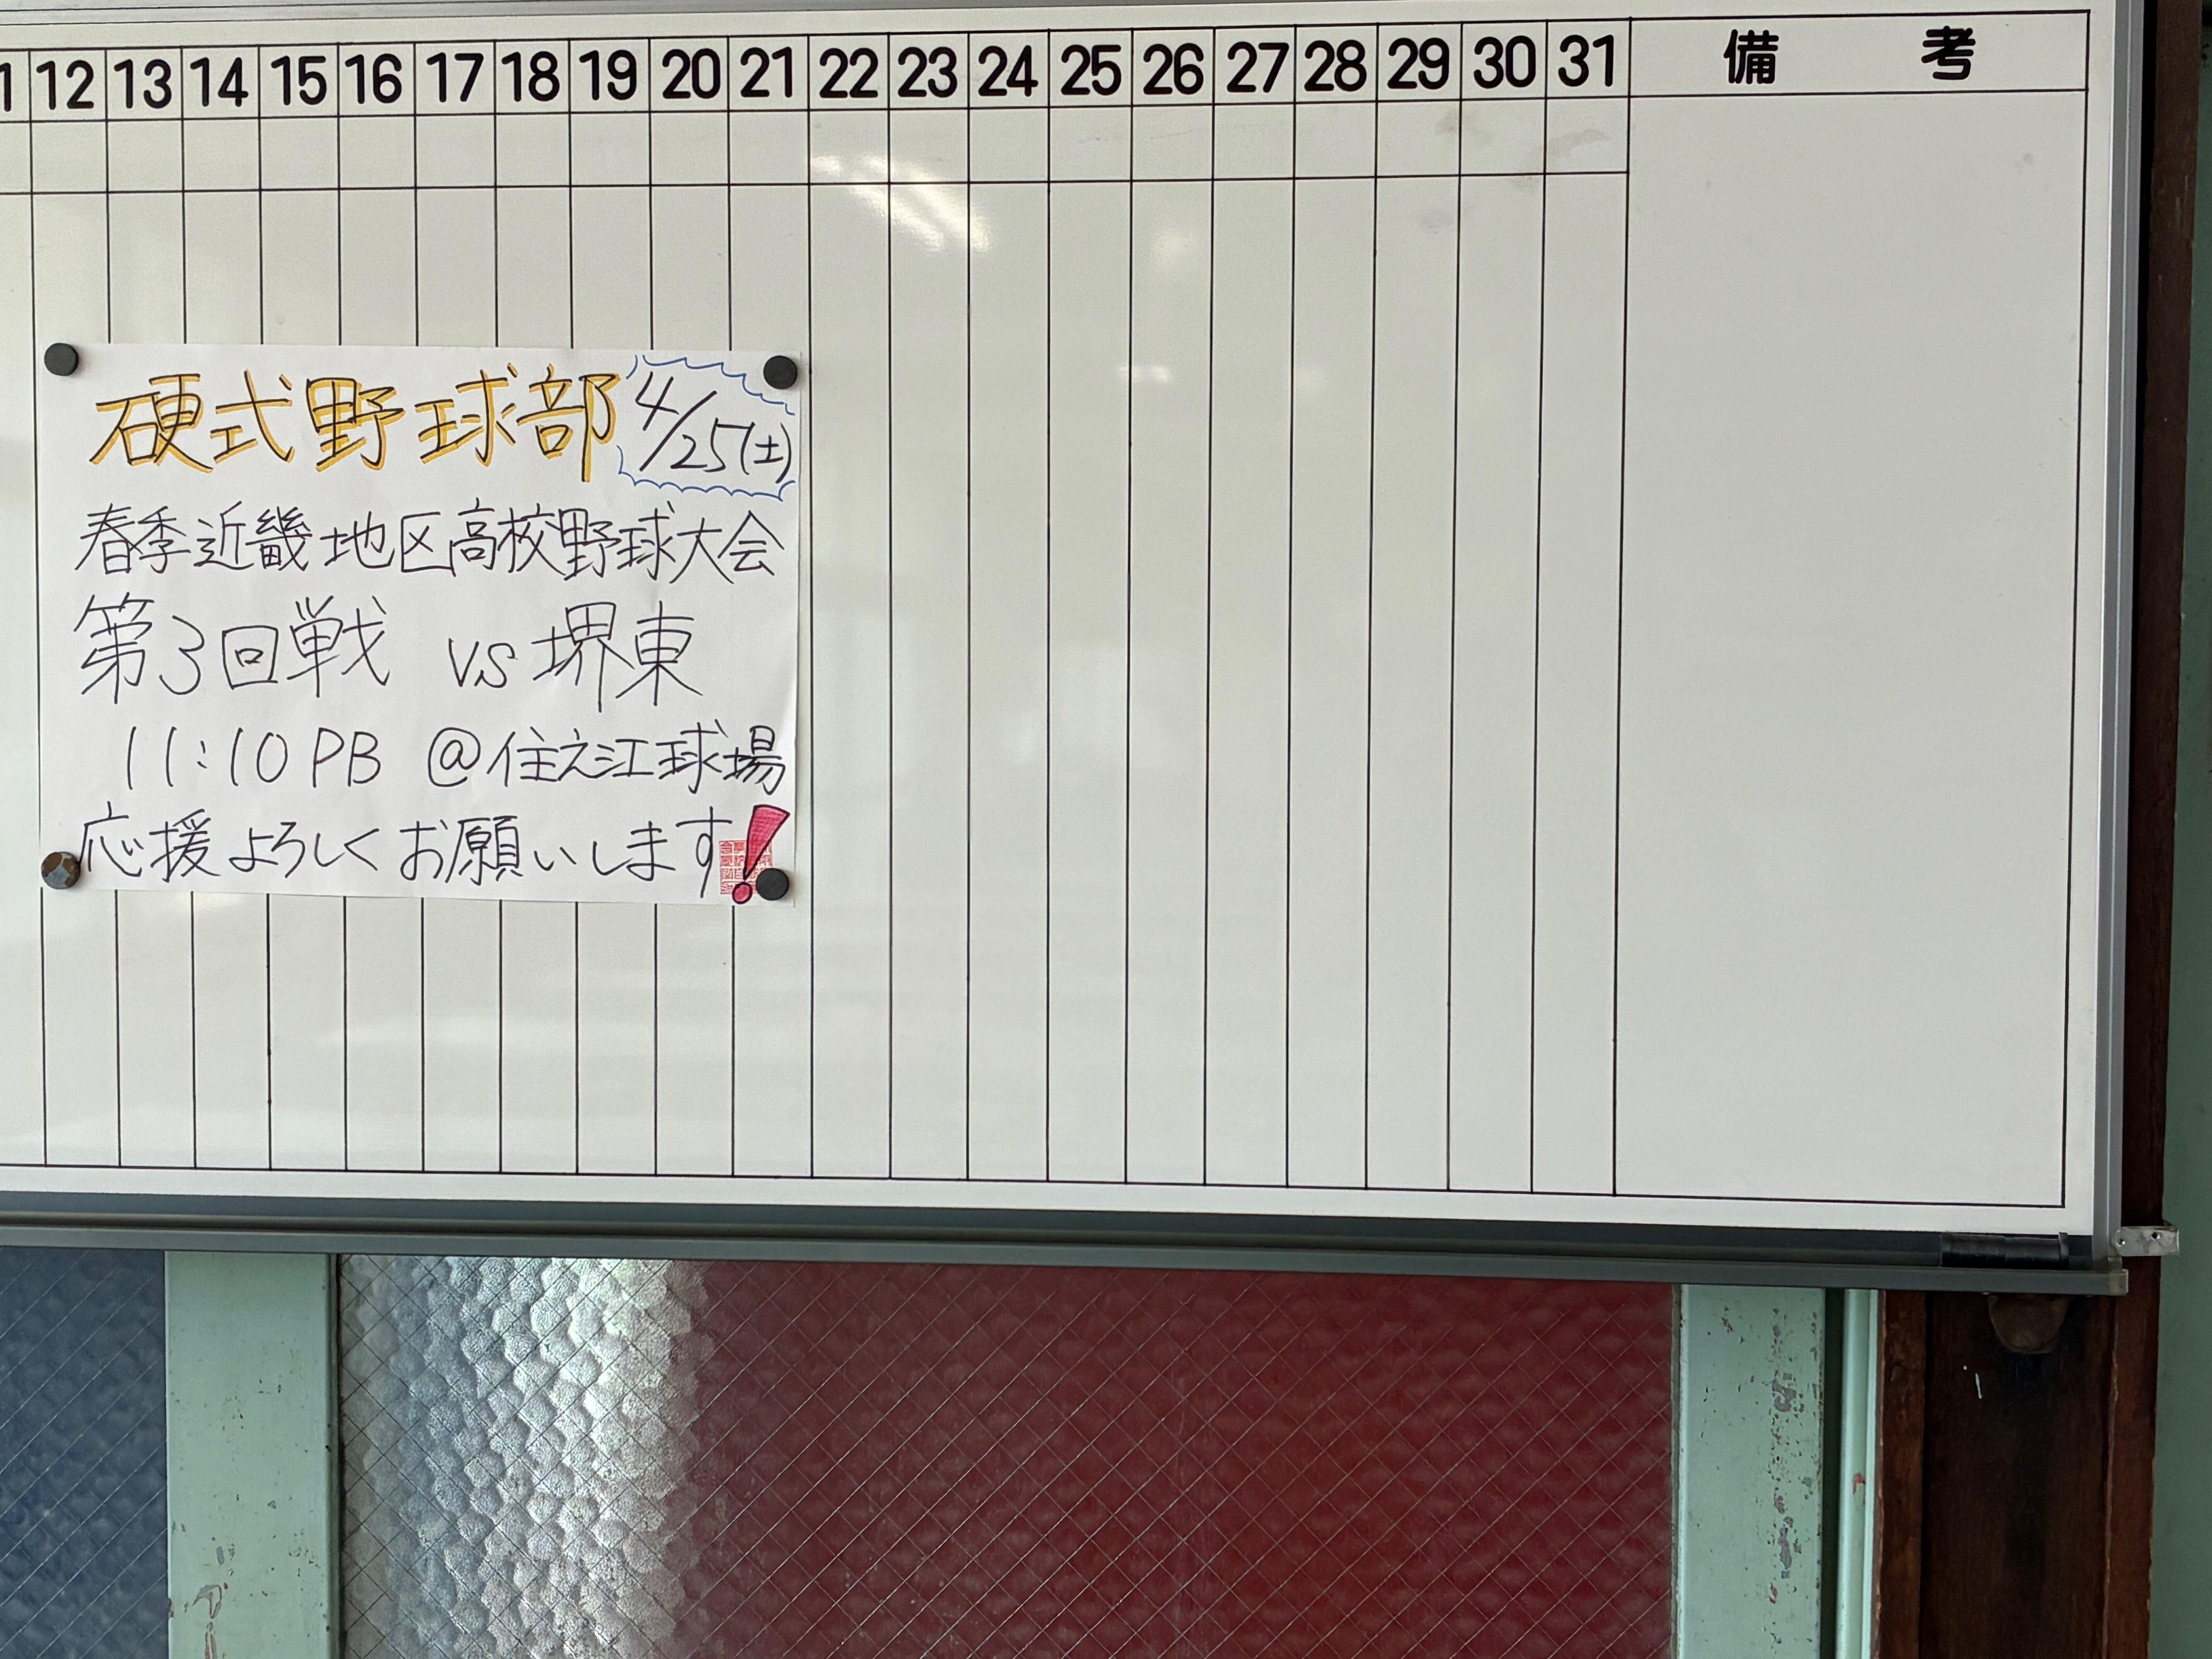 12 13 14 15 16 17 18 19 20 21 22 23 24 25 26 27 28 29 30 31 備考
硬式野球部 4/25(土)
春季近畿地区高校野球大会
第3回戦 vs 堺東
11:10 PB @住之江球場
応援よろしくお願いします!